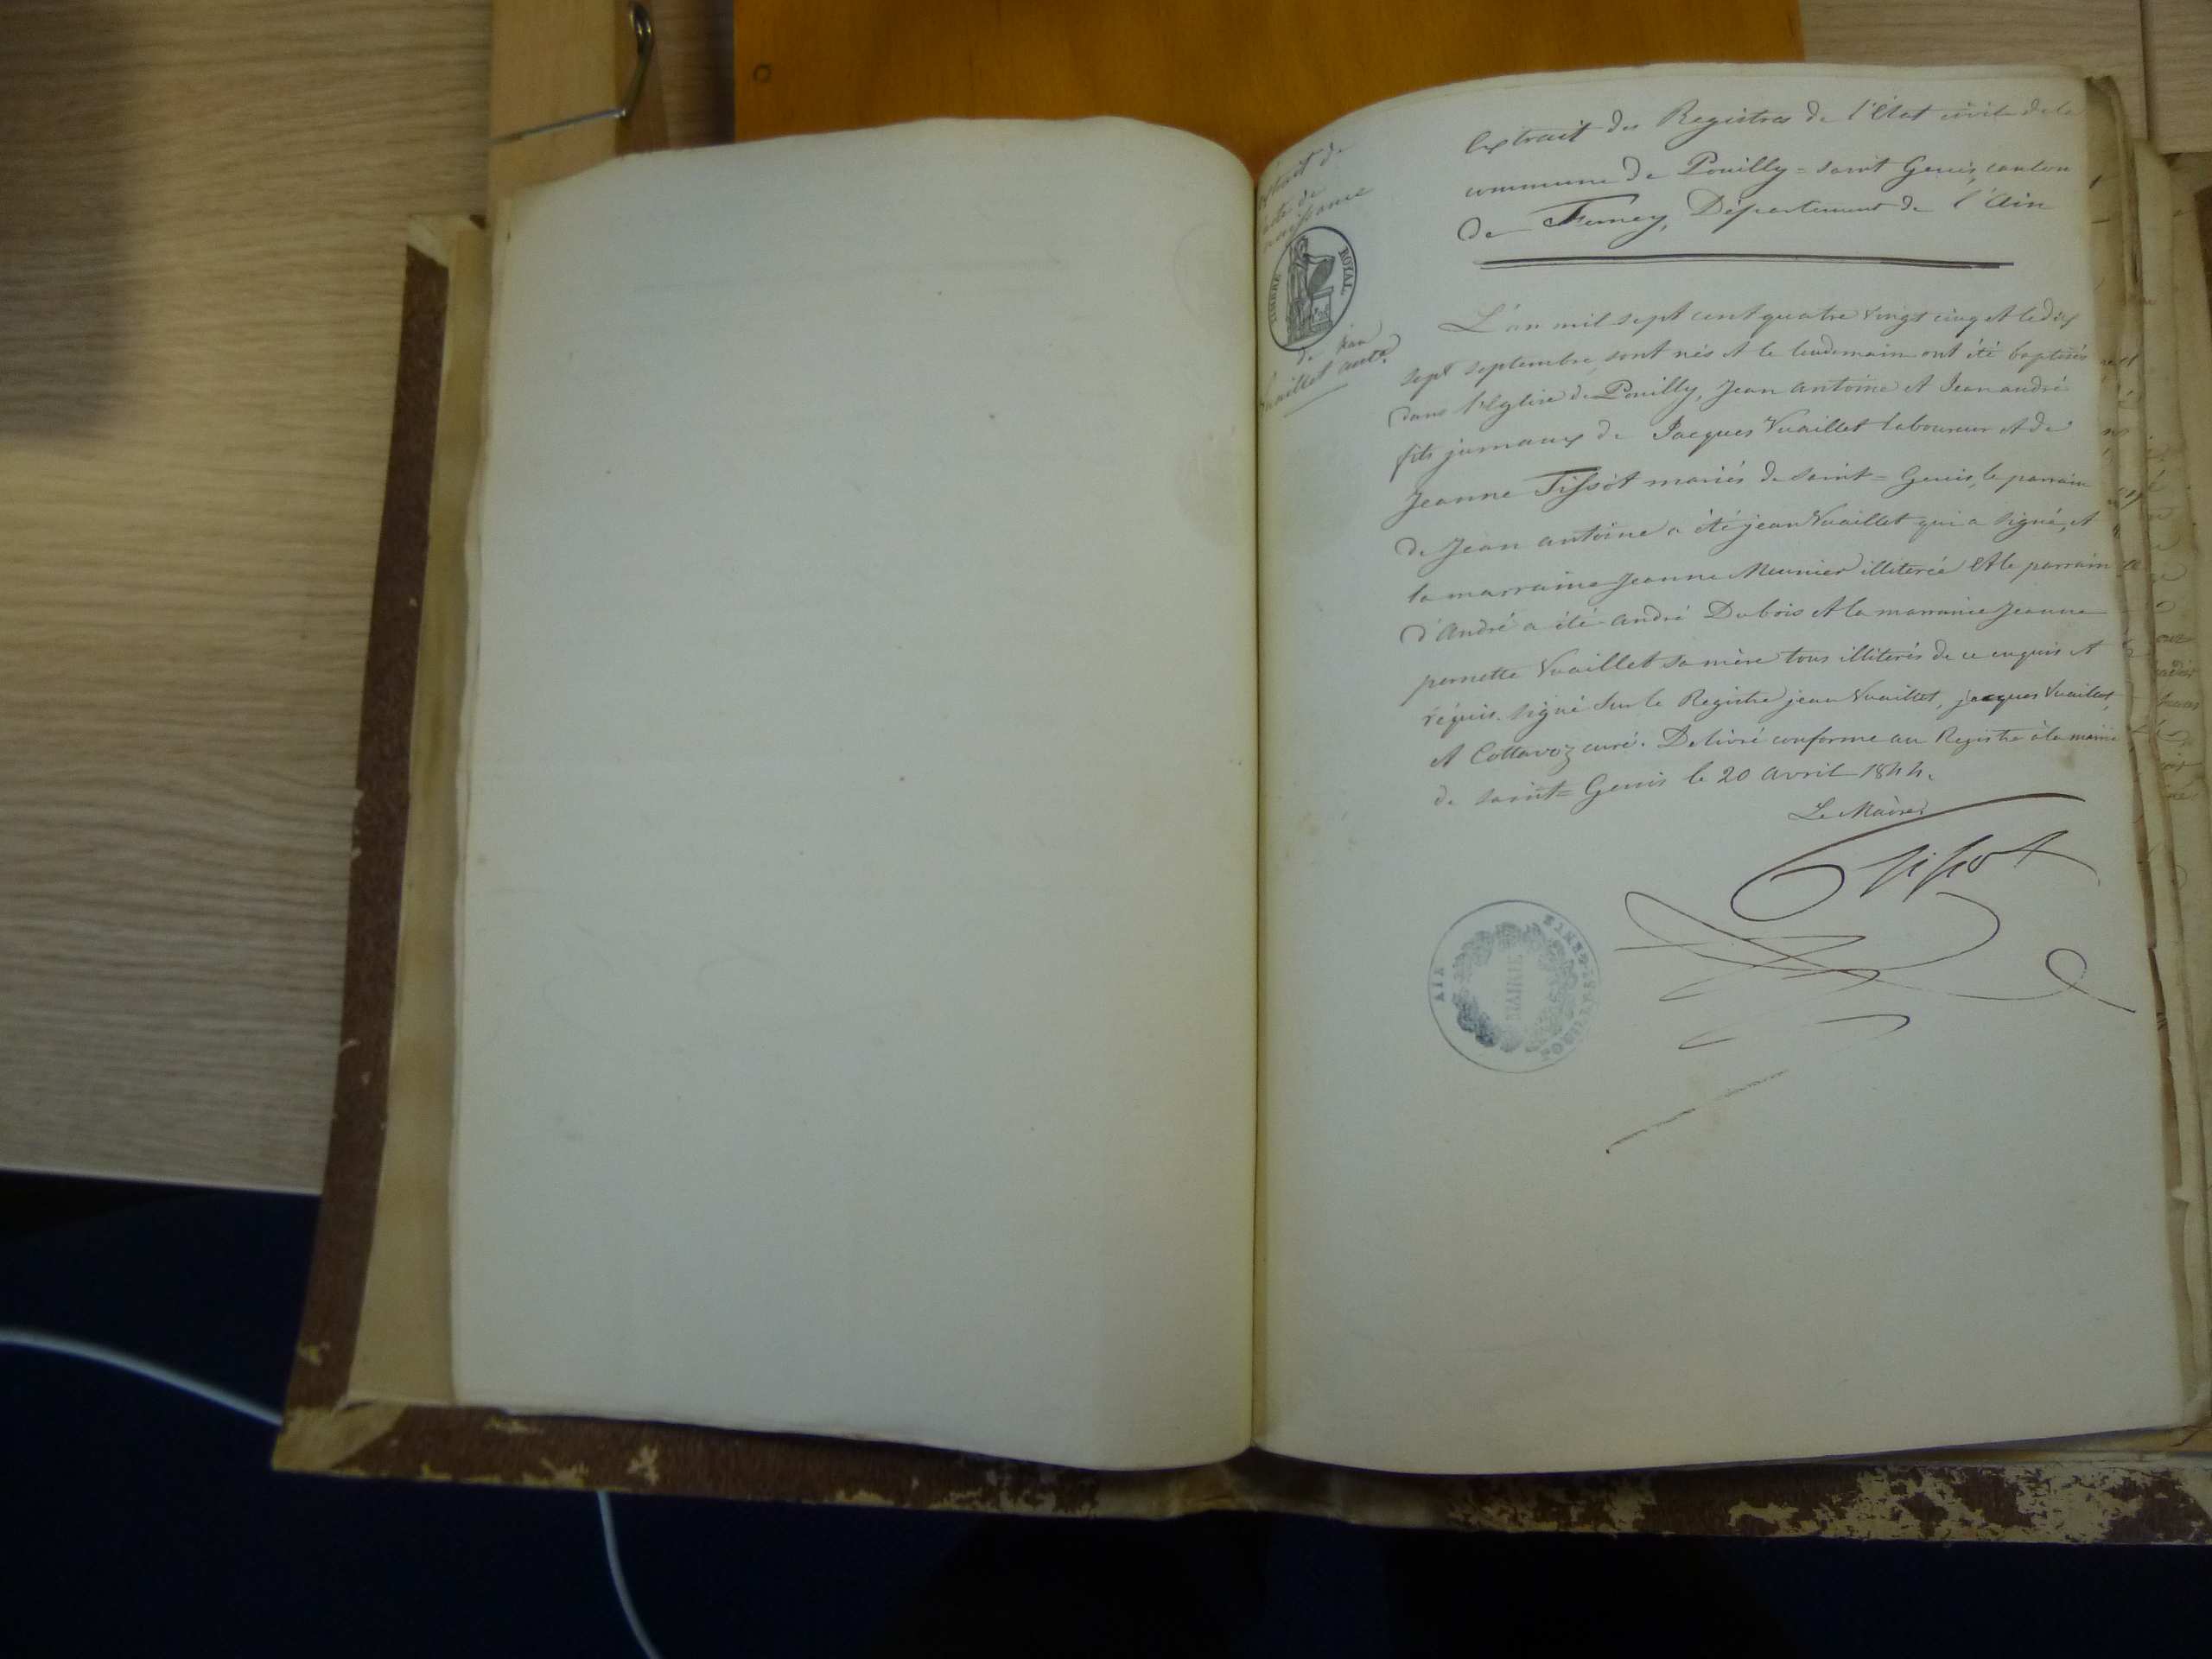 Extrait des Registres de l'Etat civile de la
commune de Pouilly = saint Genis, canton
de Ferney, Département de l'Ain
Extrait de
acte de
naissance
TIMBRE ROYAL
de jean
Vuaillet ant.e
L'an mil sept cent quatre vingt cinq et le dix
sept septembre, sont nés et le lendemain ont été baptisés
dans l'Eglise de Pouilly, Jean antoine et Jean andré
fils jumaux de Jacques Vuaillet laboureur et de
Jeanne Tissot mariés de saint = Genis, le parrain
de Jean antoine a été jean Vuaillet qui a signé, et
la marraine Jeanne Meunier illiterée et le parrain
d'André a été andré Dubois et la marraine Jeanne
pernette Vuaillet sa mère tous illiterés de ce enquis et
réquis. signé sur le Registre jean Vuaillet, jacques Vuaillet,
et Cottavoz curé. Delivré conforme au Registre à la mairie
de saint = Genis le 20 avril 1844.
Le Maire
Tissot
AIN
MAIRIE
POUILLY ST GENIS